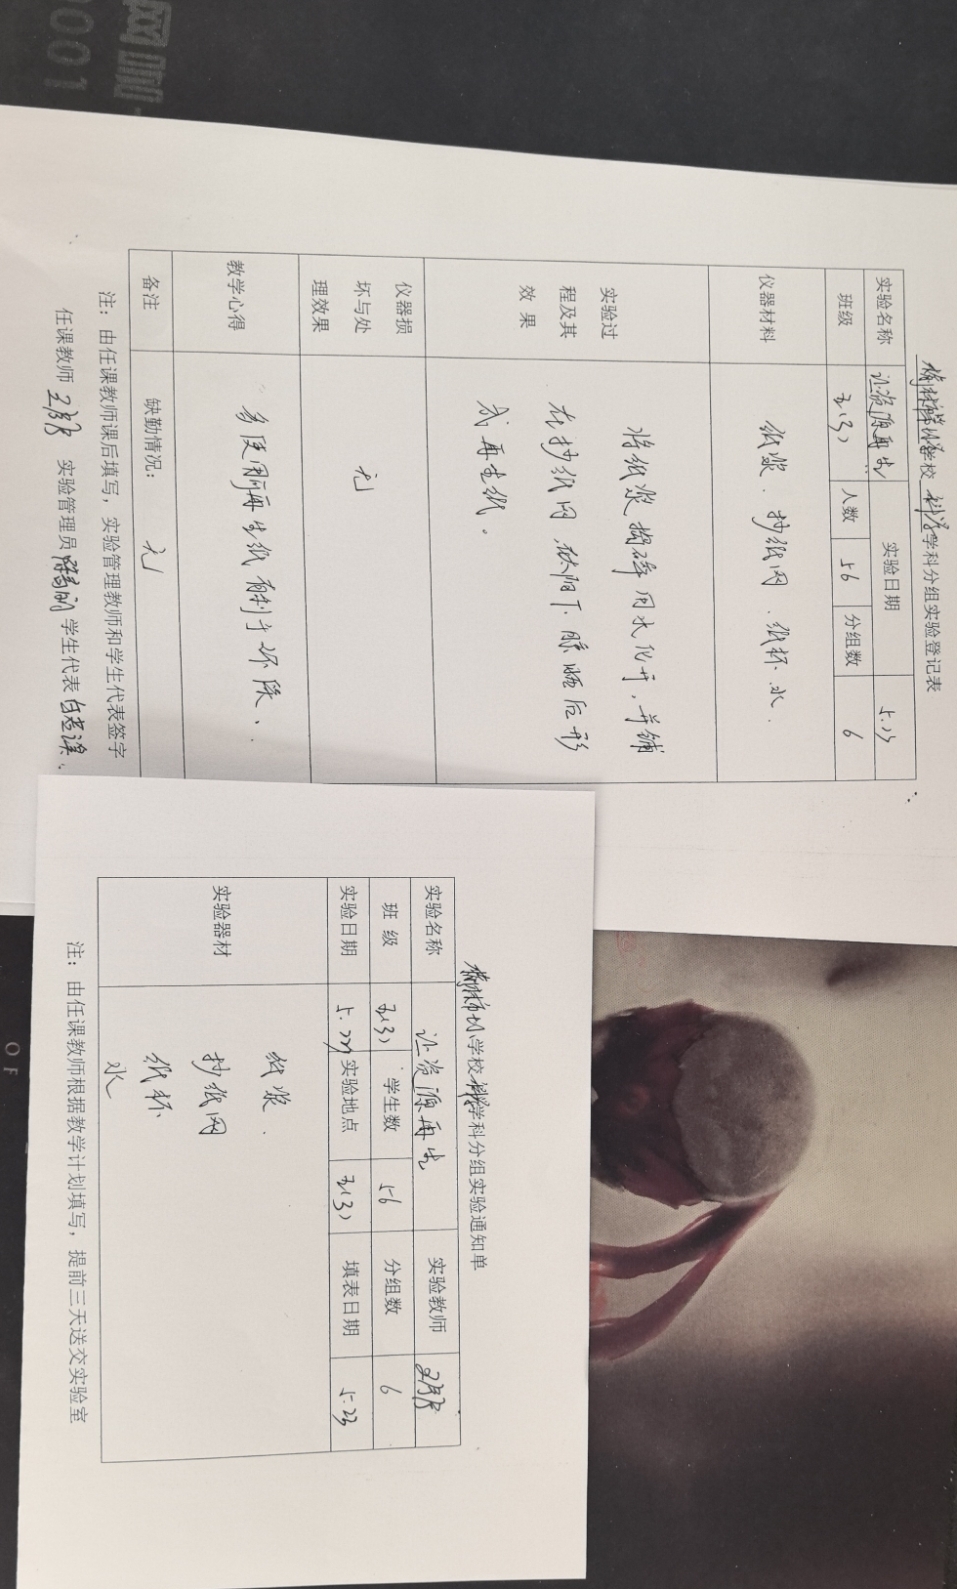 网咖
0001
学校 科学学科分组实验登记表
实验名称 让资源再生 实验日期 5.23
班级 五(3) 人数 56 分组数 6
仪器材料 纸浆、抄纸网、纸杯、水.
实验过程及其效果
将纸浆捣碎用水化开,并铺
在抄纸网,太阳下晾晒后形
成再生纸.
仪器损坏与处理效果 无
教学心得 多使用再生纸有利于环保.
备注 缺勤情况: 无
注:由任课教师课后填写,实验管理教师和学生代表签字
任课教师 实验管理员 学生代表
学校科学学科分组实验通知单
实验名称 让资源再生 实验教师
班级 五(3) 学生数 56 分组数 6
实验日期 实验地点 五(3) 填表日期 5.23
实验器材
纸浆.
抄纸网
纸杯.
水
注:由任课教师根据教学计划填写,提前三天送交实验室
OF